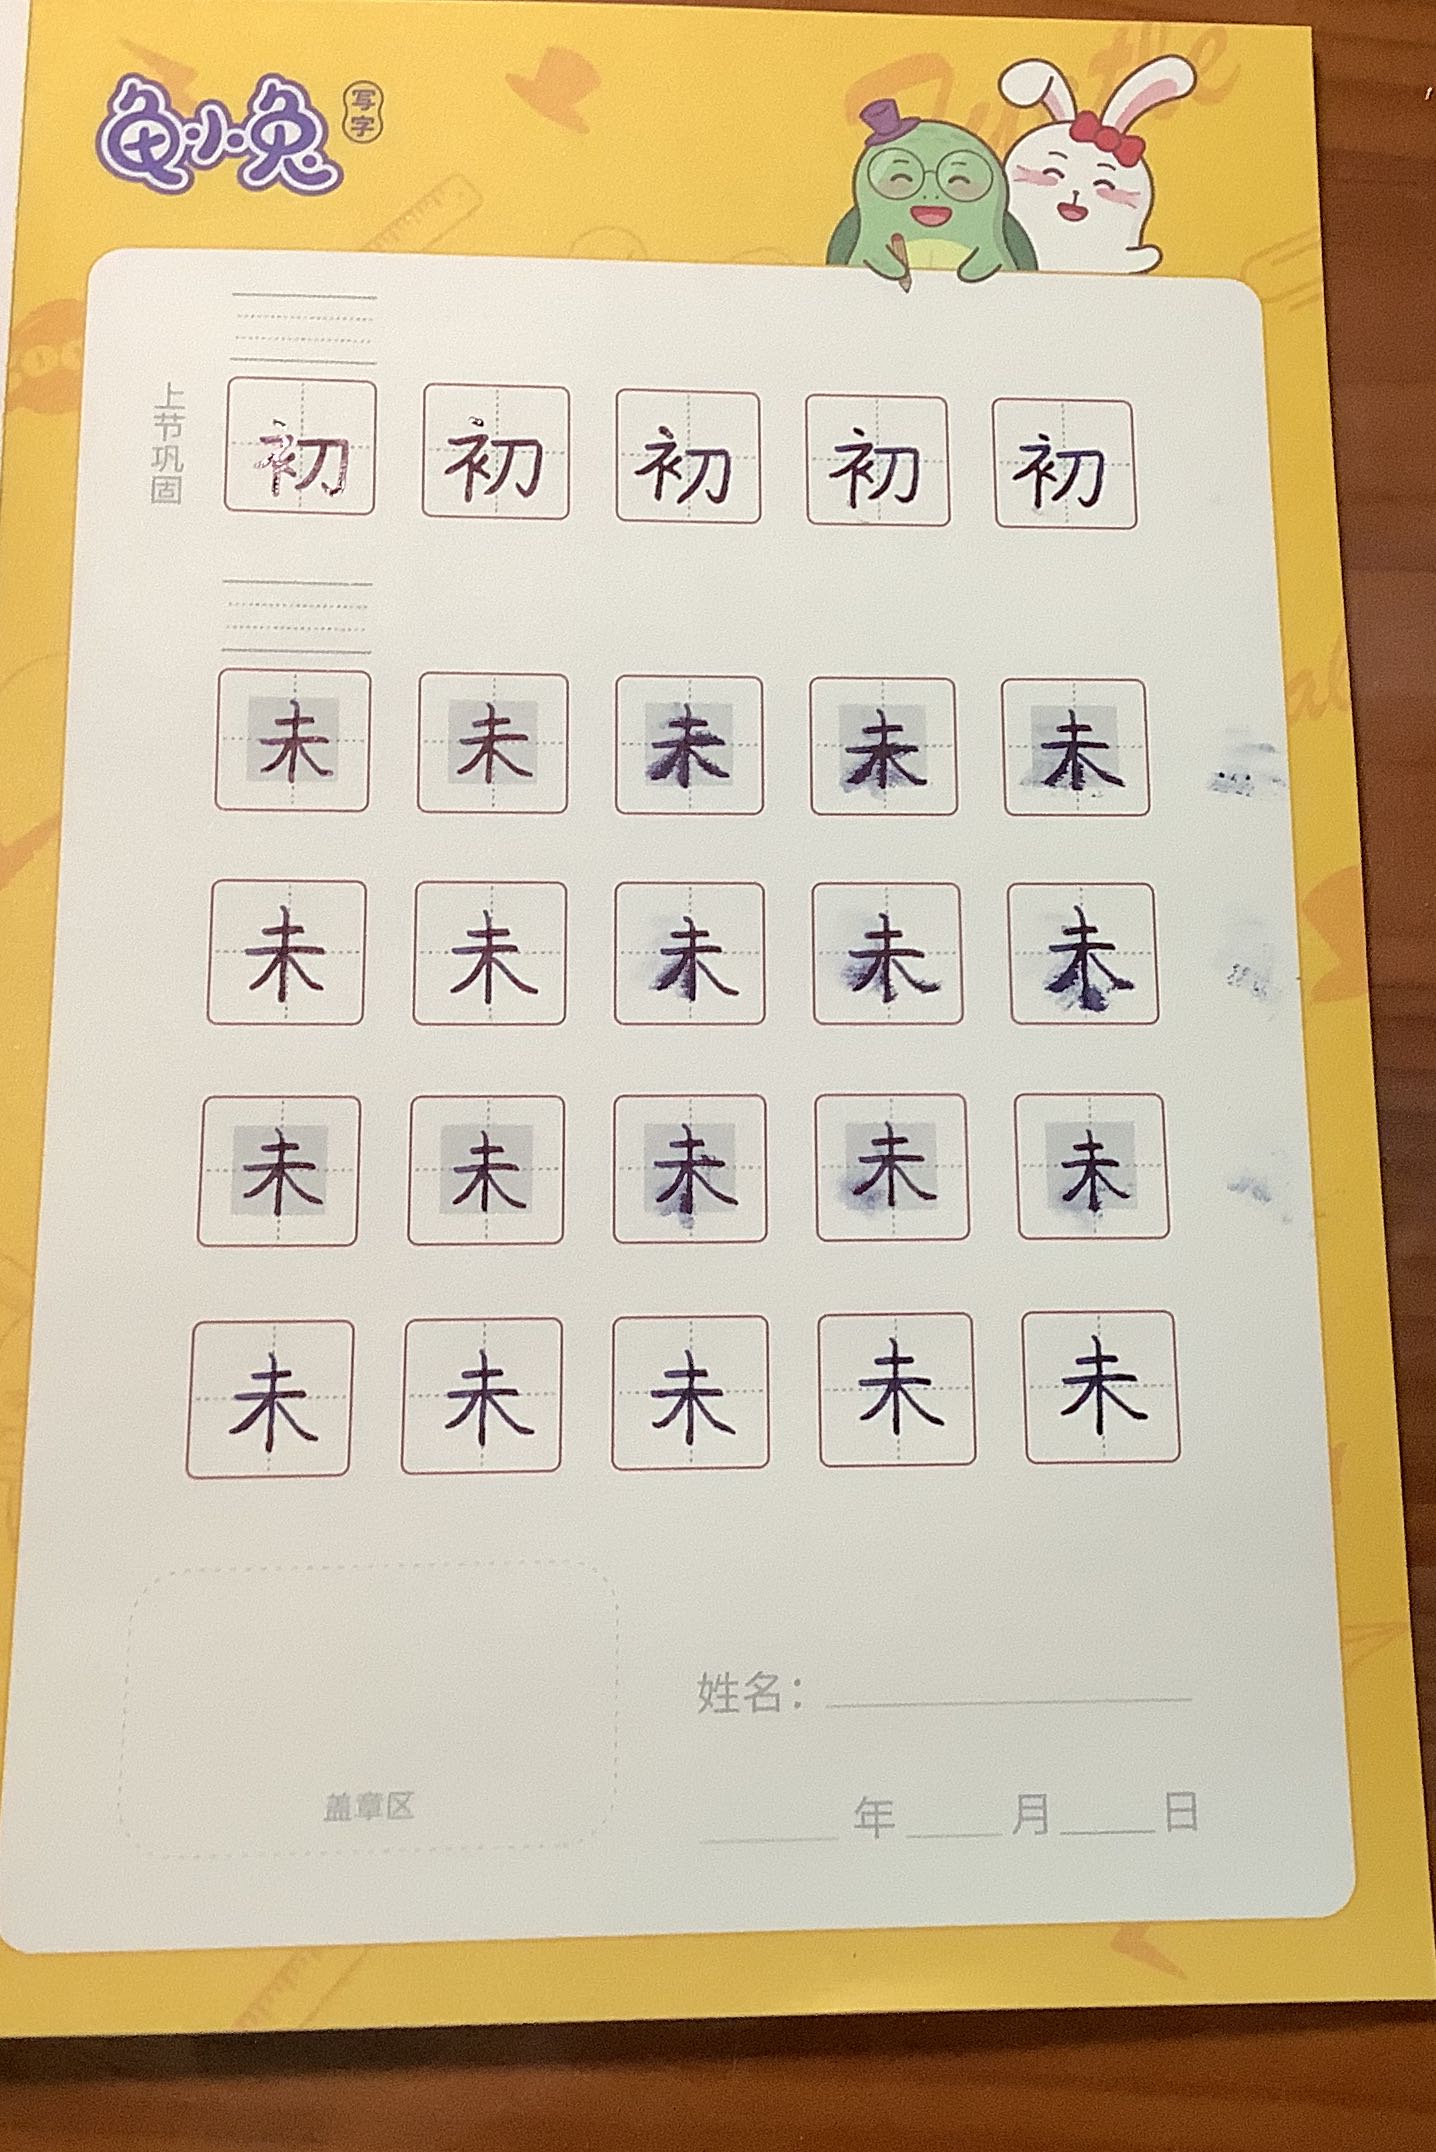 龟小兔
写字
上节巩固
初 初 初 初 初
未 未 未 未 未
未 未 未 未 未
未 未 未 未 未
未 未 未 未 未
姓名：
盖章区
年 月 日